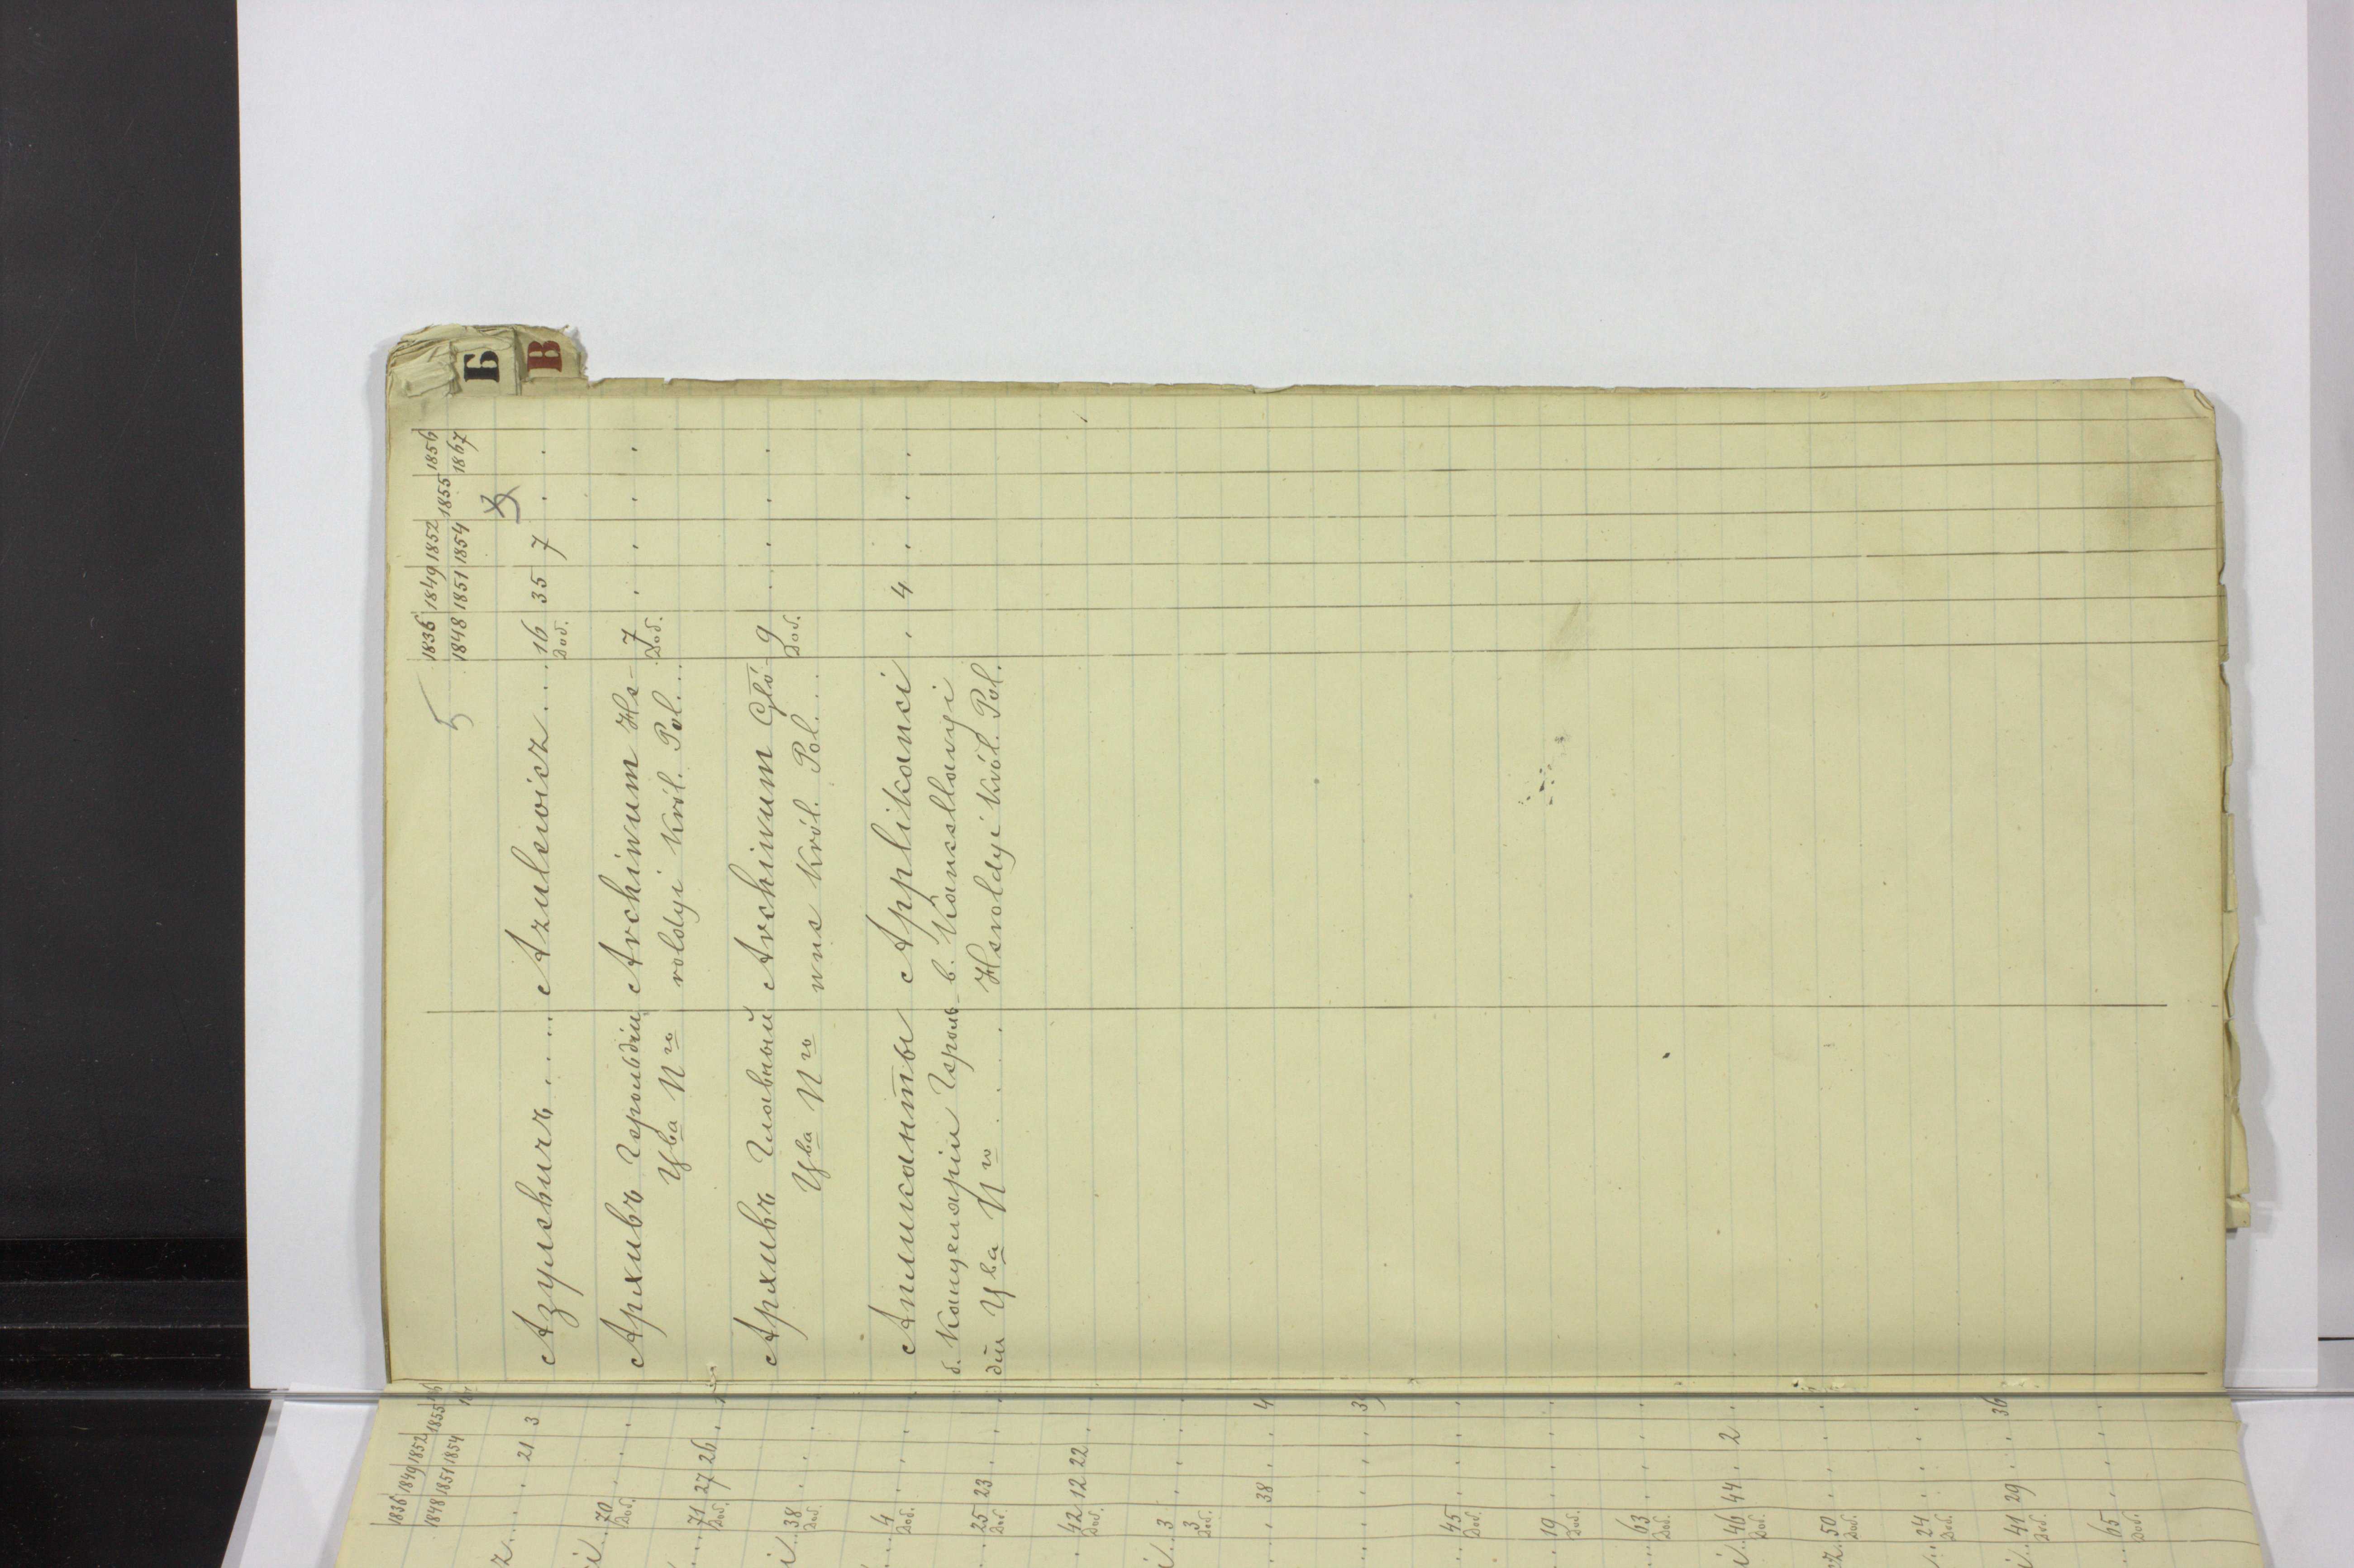 5
1836 1849 1852 1855 1856
1848 1851 1854 1867
Б
В
Азулевичъ . . . . Azulewicz . . . 16 35 7 . .
Доб.
Архивъ Герольдіи Archiwum He- 7 . . . .
Ц-ва П-го roldyi Król. Pol. . . Доб.
Архивъ Главный Archiwum Głó- 9 . . . .
Ц-ва П-го wne Król. Pol. . . Доб.
Апликанты Applikanci . 4 . . .
б. Канцеляріи Героль- b. Kancellaryi
діи Ц-ва П-го . . . . Heroldyi Król. Pol.
1836 1849 1852 1855
1848 1851 1854
z . . . . . 21 3
i . . 70 . . .
Доб.
. . . 71 27 26 .
Доб.
i . . 38 . . .
Доб.
. . . 4 . . .
Доб.
. . 25 23 . .
Доб.
. 42 12 22 .
Доб.
i . . 3 . . .
3
Доб.
. . . . 38 . . 4
. . . . . . 3
. . . 45 . . .
Доб.
. . . 19 . . .
Доб.
. . . 63 . . .
Доб.
i . . 46 44 . 2 .
Доб.
cz . . 50 . . .
Доб.
. . . 24 . . .
Доб.
i . . 41 29 . . 36
Доб.
. . . 65 . . .
Доб.